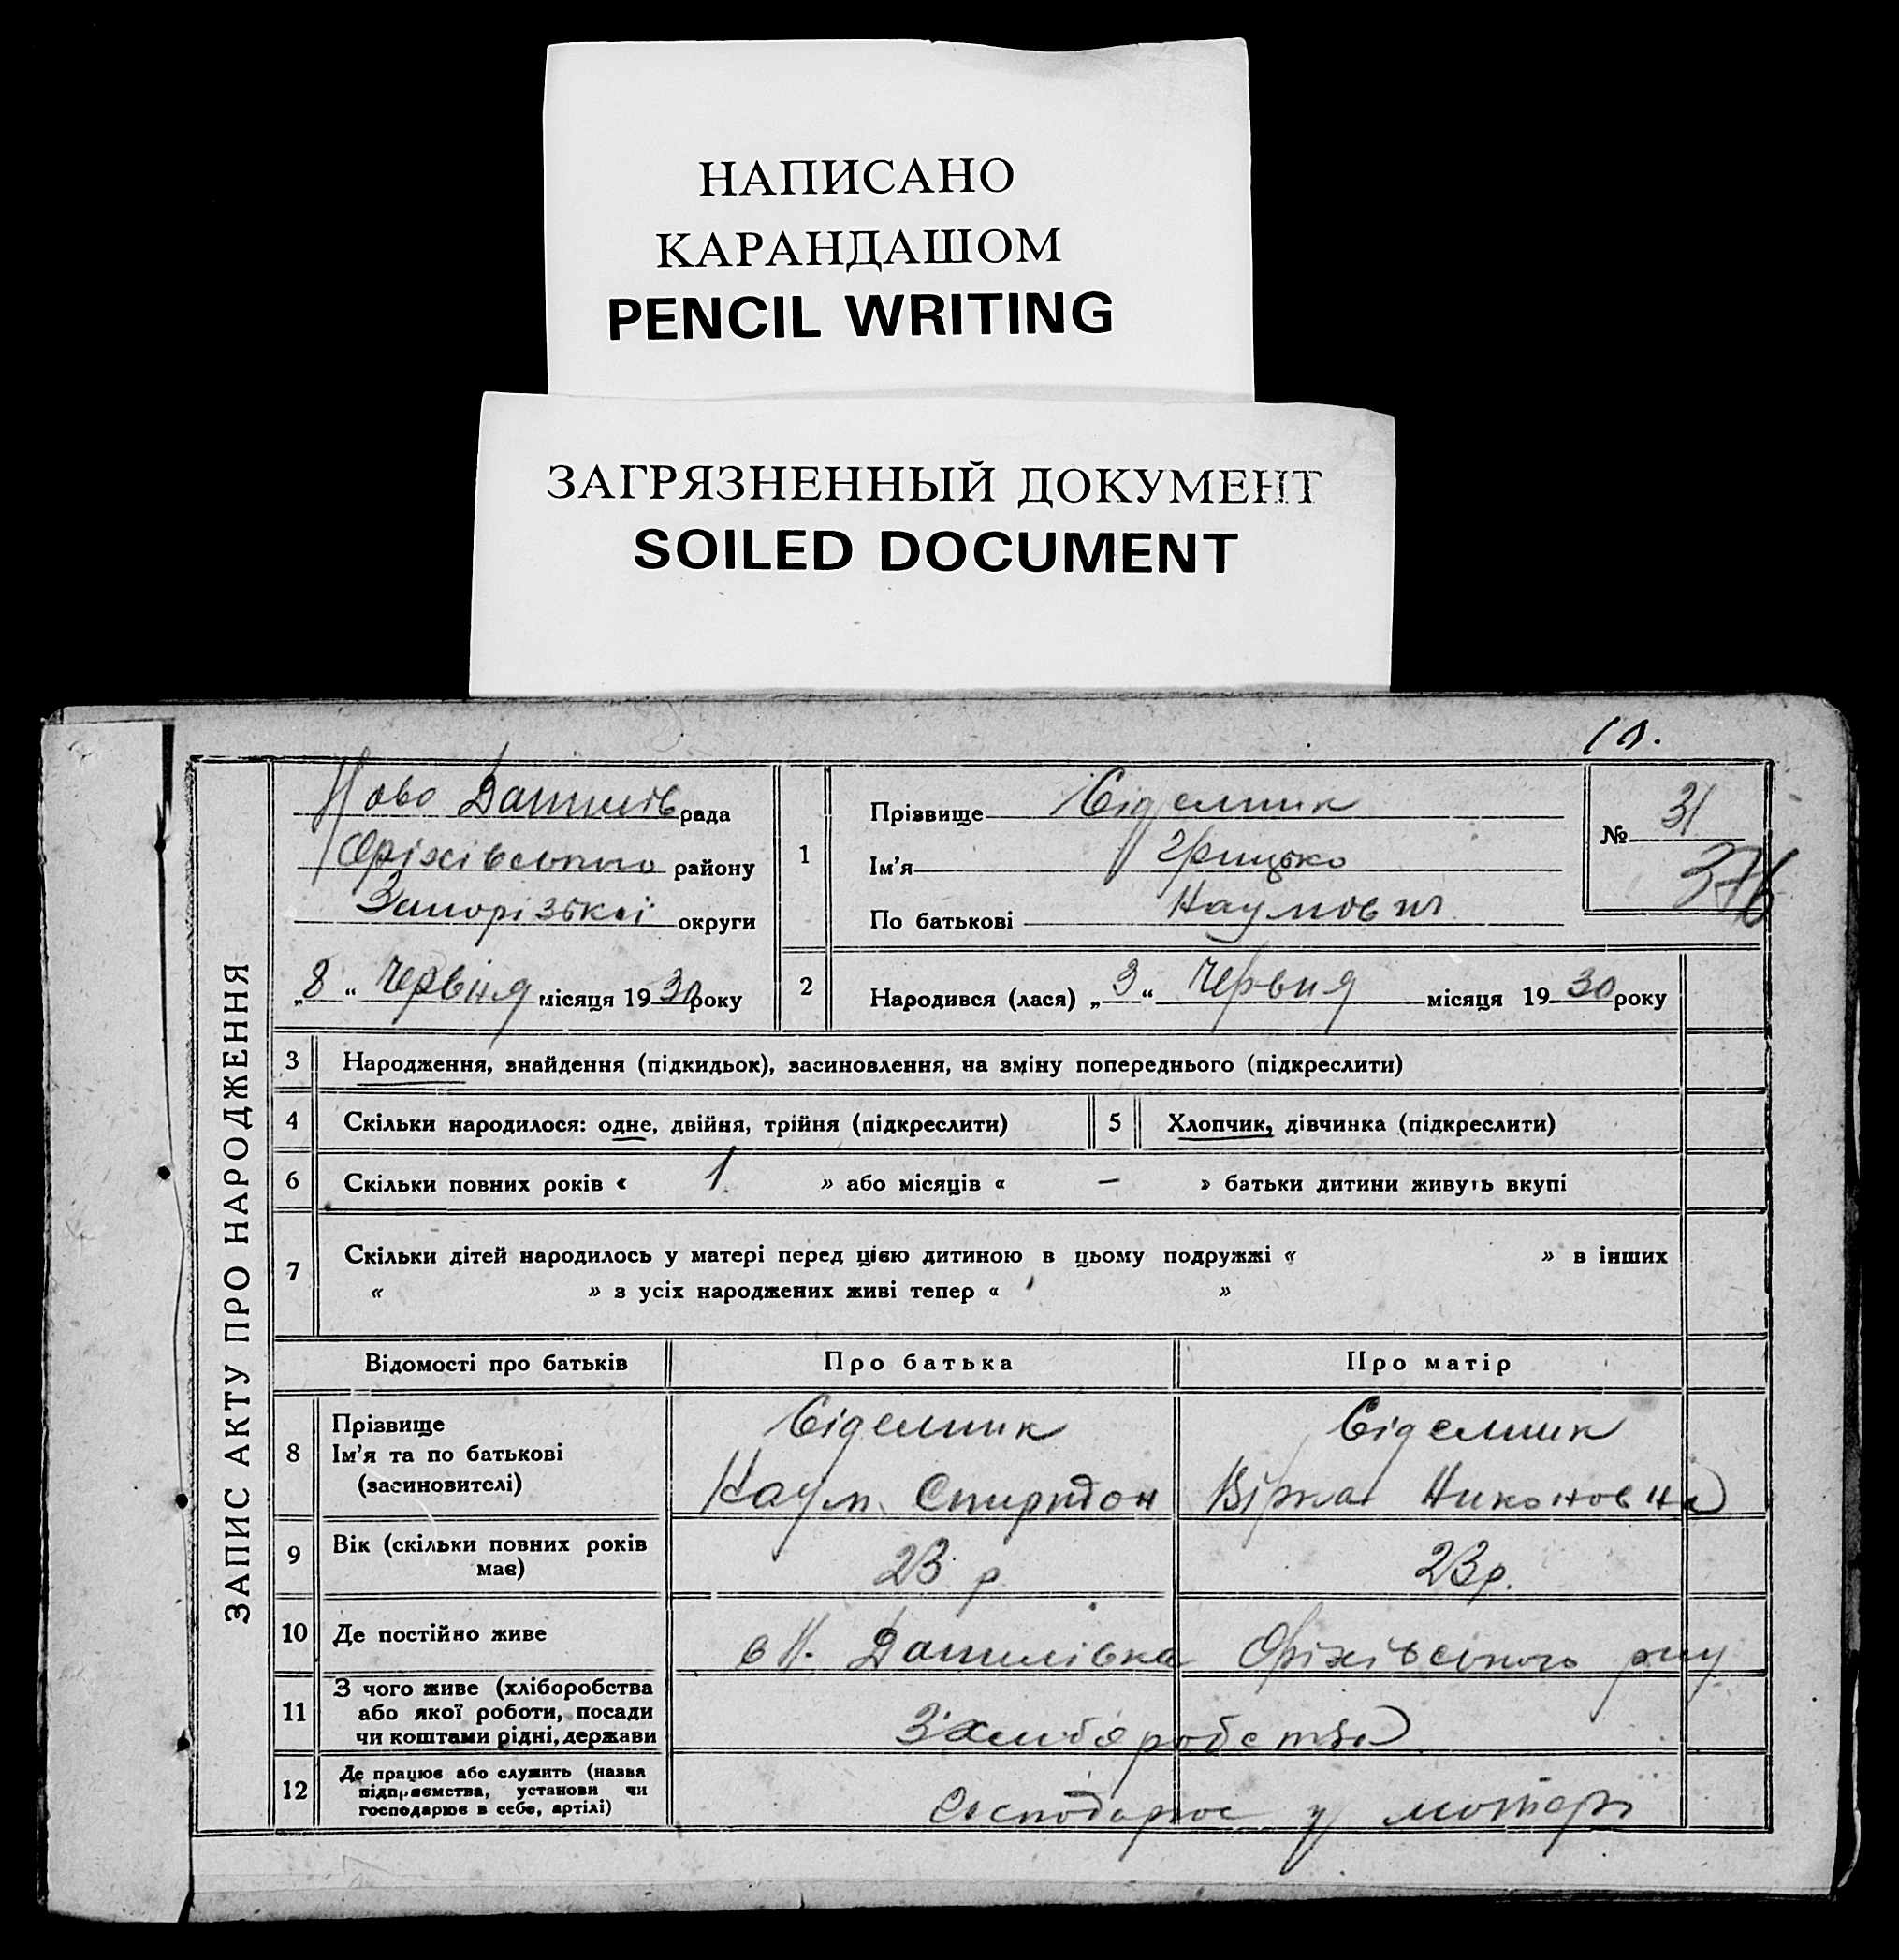 НАПИСАНО
КАРАНДАШОМ
PENCIL WRITING
ЗАГРЯЗНЕННЫЙ ДОКУМЕНТ
SOILED DOCUMENT
10.
ЗАПИС АКТУ ПРО НАРОДЖЕННЯ
Ново Данилів рада
Оріхівського району
Запорізької округи
„8“ Червня місяця 1930 року
1
Прізвище Сідельник
Ім'я Грицько
По батькові Наумович
№ 31
376
2
Народився (лася) „3“ Червня місяця 1930 року
3 Народження, знайдення (підкидьок), засиновлення, на зміну попереднього (підкреслити)
4 Скільки народилося: одне, двійня, трійня (підкреслити)
5 Хлопчик, дівчинка (підкреслити)
6 Скільки повних років « 1 » або місяців « — » батьки дитини живуть вкупі
7 Скільки дітей народилось у матері перед цією дитиною в цьому подружжі « » в інших
« » з усіх народжених живі тепер « »
Відомості про батьків Про батька Про матір
8 Прізвище
Ім'я та по батькові
(засиновителі)
Сідельник
Наум Спиридон
Сідельник
Никоновна
9 Вік (скільки повних років
має)
23 р
23р.
10 Де постійно живе
в Н. Данилівка Оріхівського р-ну
11 З чого живе (хліборобства
або якої роботи, посади
чи коштами рідні, держави
З хліборобства
12 Де працює або служить (назва
підприємства, установи чи
господарює в себе, артілі)
Господарює у матері